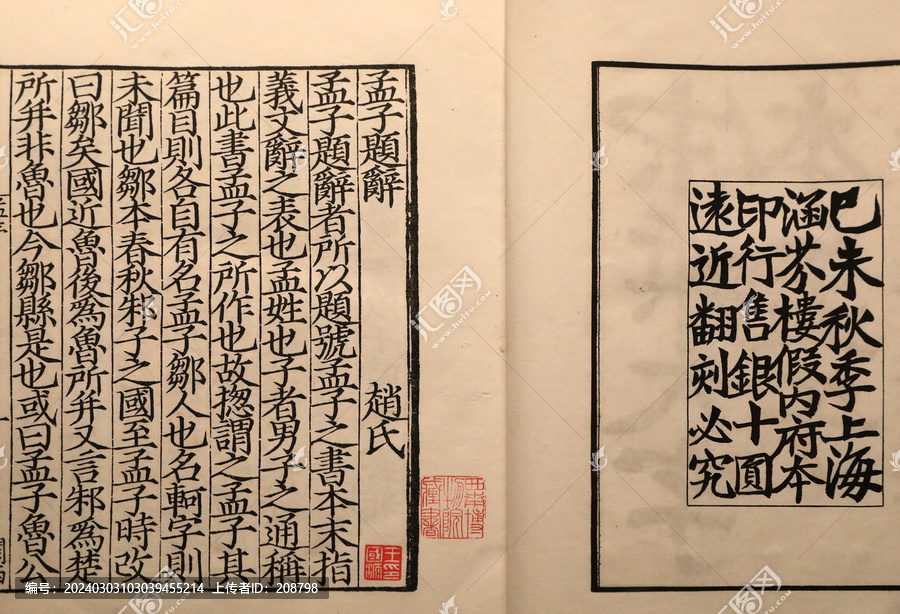 巳未秋季上海
涵芬樓假内府本
印行售銀十圓
遠近翻刻必究
孟子題辭 趙氏
孟子題辭者所以題號孟子之書本末指
義文辭之表也孟姓也子者男子之通稱
也此書孟子之所作也故揔謂之孟子其
篇目則各自有名孟子鄒人也名軻字則
未聞也鄒本春秋邾子之國至孟子時改
曰鄒矣國近魯後爲魯所并又言邾爲楚
所并非魯也今鄒縣是也或曰孟子魯公
汇图网
huitu.com
编号：20240303103039455214 上传者ID：208798